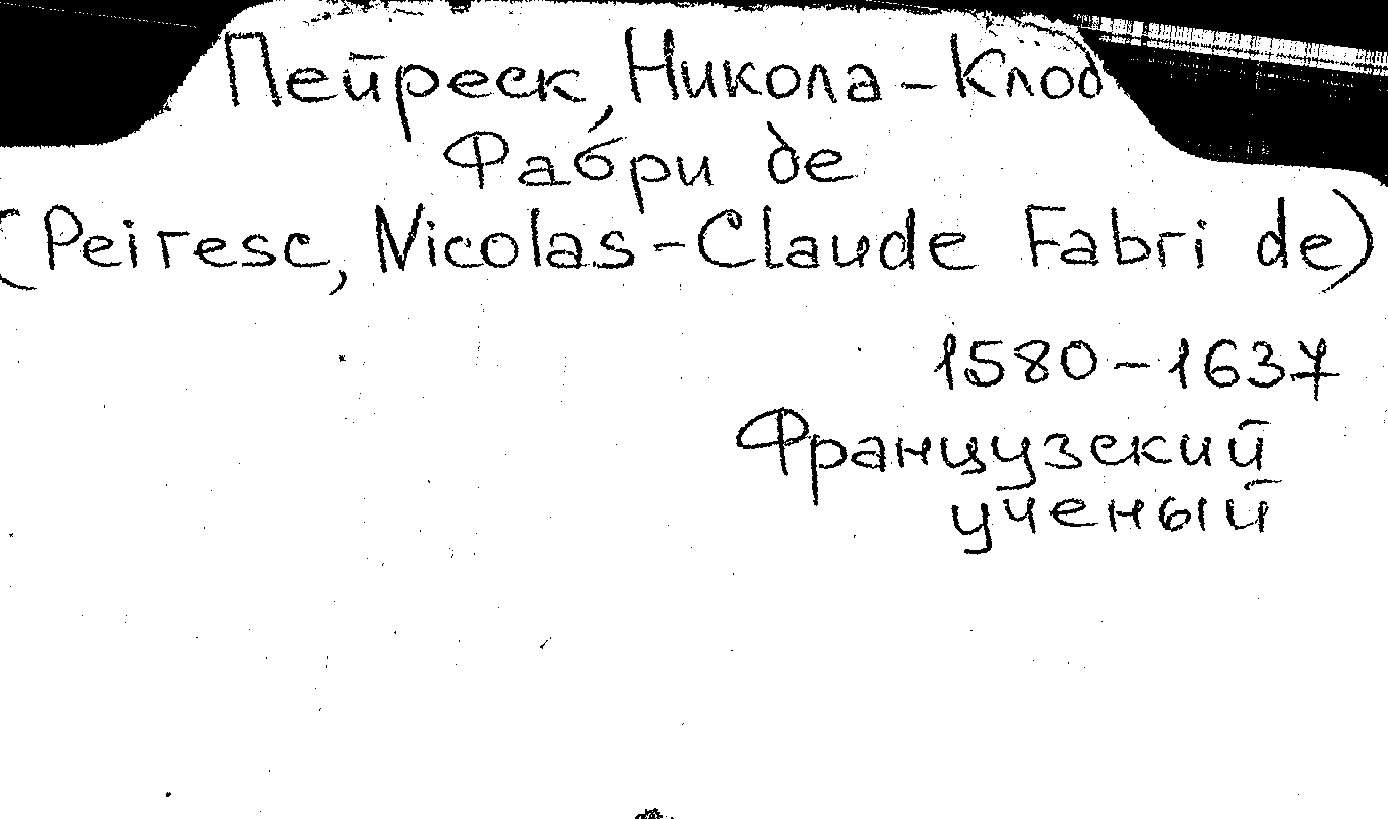 Пейреск, Никола-Клод
Фабри де
(Peiresc, Nicolas-Claude Fabri de)
1580-1637
Французский
ученый